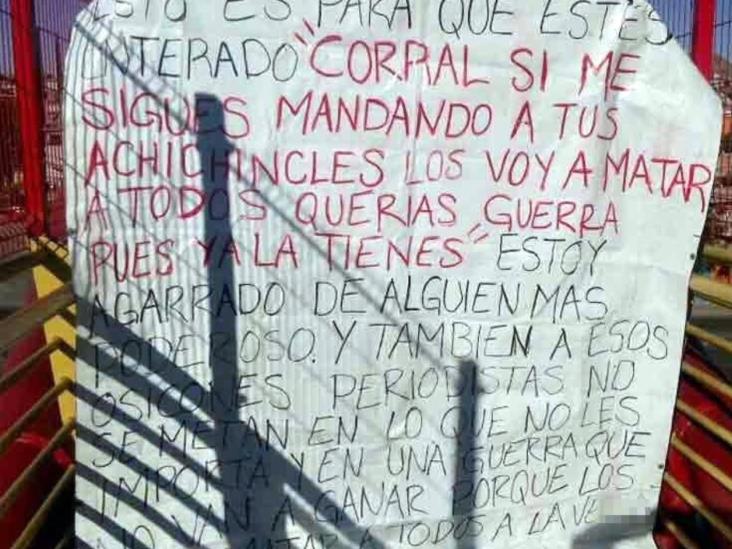 ESTO ES PARA QUE ESTES
ENTERADO "CORRAL SI ME
SIGUES MANDANDO A TUS
ACHICHINCLES LOS VOY A MATAR
A TODOS QUERIAS GUERRA
PUES YA LA TIENES" ESTOY
AGARRADO DE ALGUIEN MAS
PODEROSO. Y TAMBIEN A ESOS
OSICONES PERIODISTAS NO
SE METAN EN LO QUE NO LES
IMPORTA Y EN UNA GUERRA QUE
NO VAN A GANAR PORQUE LOS
MATAR A TODOS A LA VE